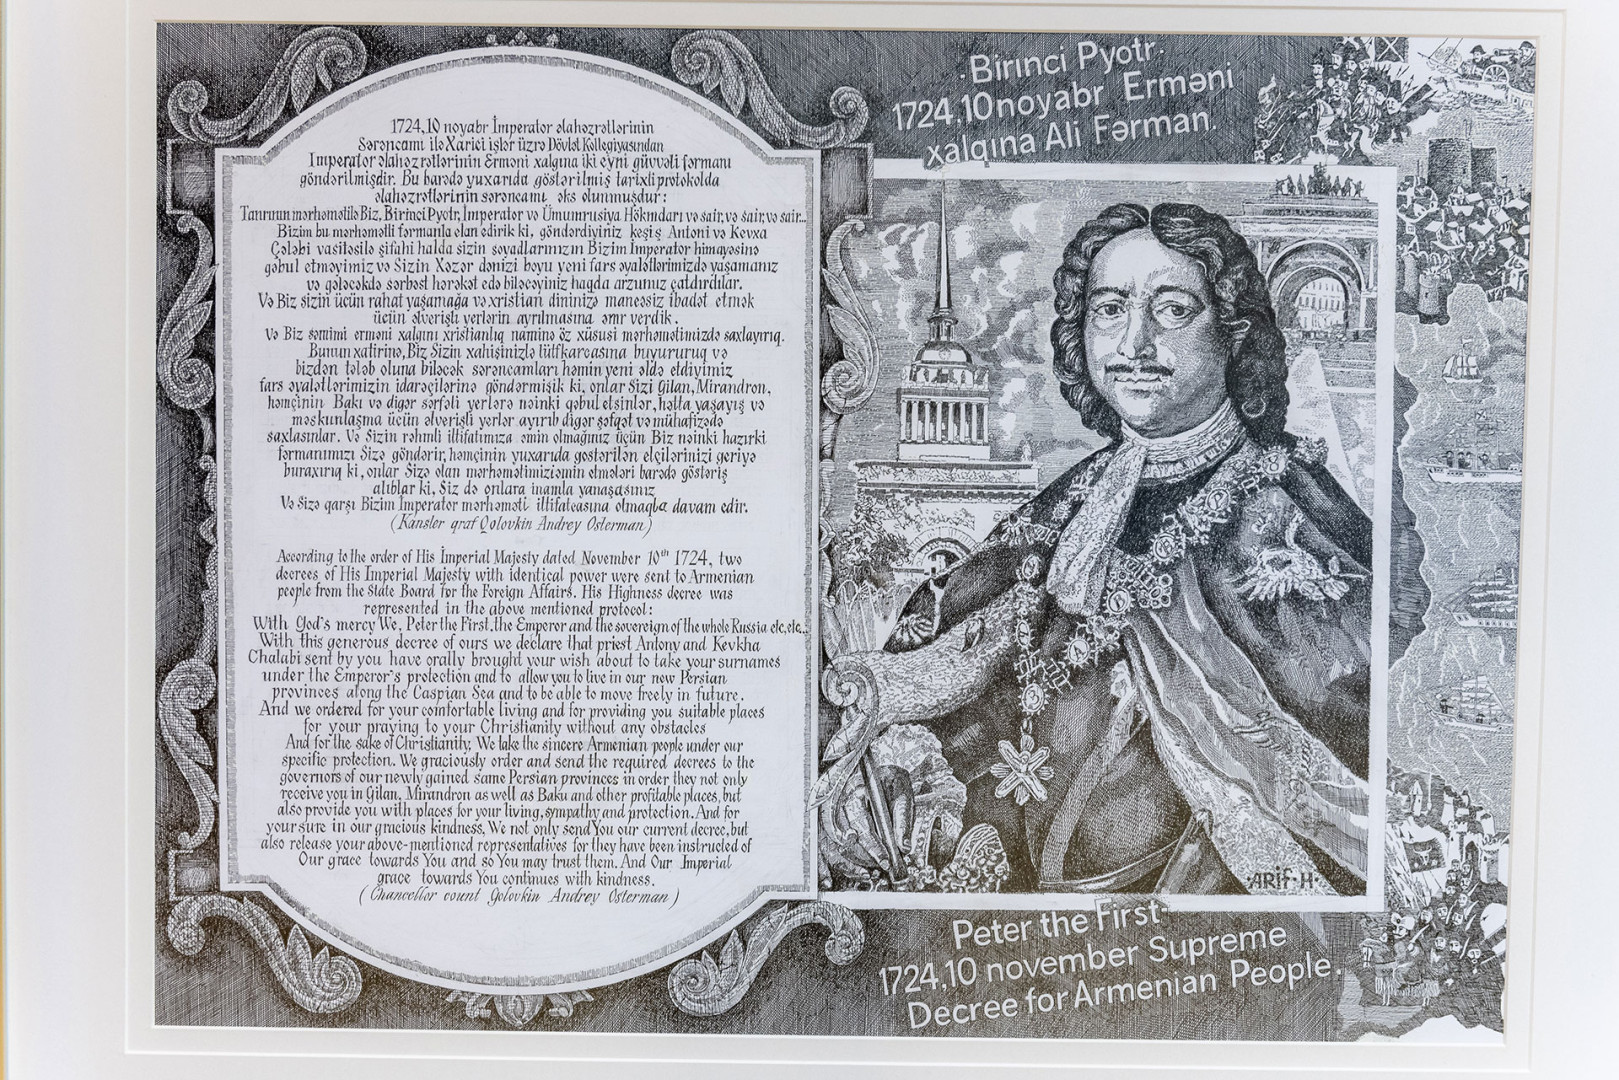 1724,10 noyabr İmperator əlahəzrətlərinin
Sərəncamı ilə Xarici işlər üzrə Dövlət Kollegiyasından
Imperator əlahəzrətlərinin Erməni xalqına iki eyni güvvəli fərmanı
göndərilmişdir. Bu barədə yuxarıda göstərilmiş tarixli protokolda
əlahəzrətlərinin sərəncamı əks olunmuşdur:
Tanrının mərhəmətilə Biz, Birinci Pyotr, İmperator və Ümumrusiya Hökmdarı və sair, və sair, və sair...
Bizim bu mərhəmətli fərmanla elan edirik ki, göndərdiyiniz keşiş Antoni və Kevxa
Çələbi vasitəsilə şifahi halda sizin soyadlarınızın Bizim Imperator himayəsinə
qəbul etməyimiz və Sizin Xəzər dənizi boyu yeni fars əyalətlərimizdə yaşamanız
və gələcəkdə sərbəst hərəkət edə biləcəyiniz haqda arzunuz çatdırdılar.
Və Biz sizin üçün rahat yaşamağa və xristian dininizə maneəsiz ibadət etmək
üçün əlverişli yerlərin ayrılmasına əmr verdik.
Və Biz səmimi erməni xalqını xristianlıq naminə öz xüsusi mərhəmətimizdə saxlayırıq.
Bunun xatirinə, Biz Sizin xahişinizlə lütfkarcasına buyururuq və
bizdən tələb oluna biləcək sərəncamları həmin yeni əldə etdiyimiz
fars əyalətlərimizin idarəçilərinə göndərmişik ki, onlar Sizi Gilan, Mirandron,
həmçinin Bakı və digər sərfəli yerlərə nəinki qəbul etsinlər, hətta yaşayış və
məskunlaşma üçün əlverişli yerlər ayırıb digər şəfqət və mühafizədə
saxlasınlar. Və Sizin rəhmli iltifatımıza əmin olmağınız üçün Biz nəinki hazırki
fərmanımızı Sizə göndərir, həmçinin yuxarıda göstərilən elçilərinizi geriyə
buraxırıq ki, onlar Sizə olan mərhəmətimizi əmin etmələri barədə göstəriş
alıblar ki, Siz də onlara inamla yanaşasınız
Və Sizə qarşı Bizim Imperator mərhəməti iltifatcasına olmaqla davam edir.
(Kansler qraf Qolovkin Andrey Osterman)
According to the order of His İmperial Majesty dated November 10th 1724, two
decrees of His Imperial Majesty with identical power were sent to Armenian
people from the State Board for the Foreign Affairs. His Highness decree was
represented in the above mentioned protocol:
With God's mercy We, Peter the First, the Emperor and the sovereign of the whole Russia etc, etc...
With this generous decree of ours we declare that priest Antony and Kevkha
Chalabi sent by you have orally brought your wish about to take your surnames
under the Emperor's protection and to allow you to live in our new Persian
provinces along the Caspian Sea and to be able to move freely in future.
And we ordered for your comfortable living and for providing you suitable places
for your praying to your Christianity without any obstacles
And for the sake of Christianity, We take the sincere Armenian people under our
specific protection. We graciously order and send the required decrees to the
governors of our newly gained same Persian provinces in order they not only
receive you in Gilan, Mirandron as well as Baku and other profitable places, but
also provide you with places for your living, sympathy and protection. And for
your sure in our gracious kindness, We not only send You our current decree, but
also release your above-mentioned representatives for they have been instructed of
Our grace towards You and so You may trust them. And Our Imperial
grace towards You continues with kindness.
(Chancellor count Golovkin Andrey Osterman)
·Birinci Pyotr·
1724,10 noyabr Erməni
xalqına Ali Fərman.
·ARİF·H·
Peter the First·
1724,10 november Supreme
Decree for Armenian People.